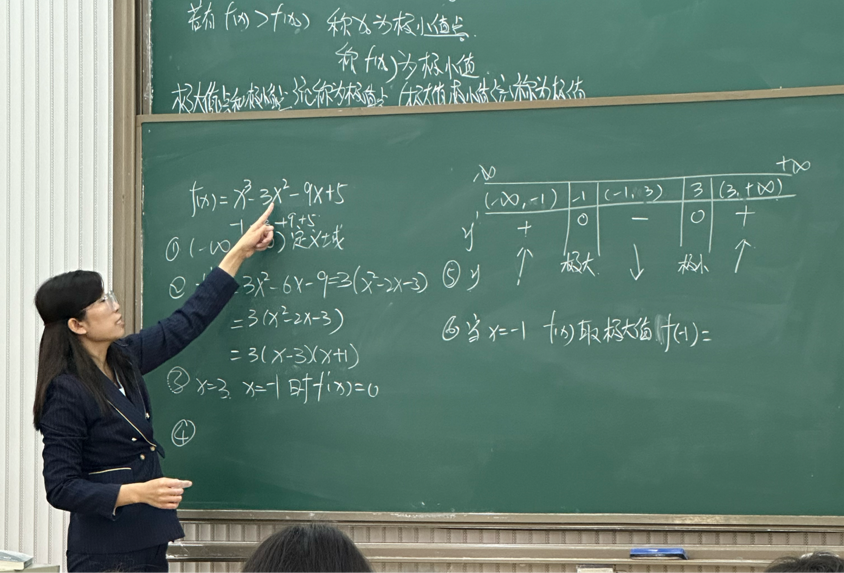 若有 f(x) > f(x₀) 称 x₀ 为极小值点.
称 f(x₀) 为极小值
极大值点和极小值点 统称为极值点 极大值 极小值 统称为极值
f(x) = x³ - 3x² - 9x + 5
+9+5
① (-∞, ) 定义域
② 3x² - 6x - 9 = 3(x² - 2x - 3)
= 3(x² - 2x - 3)
= 3(x - 3)(x + 1)
③ x = 3. x = -1 时 f'(x) = 0
④
-∞ +∞
(-∞, -1) -1 (-1, 3) 3 (3, +∞)
y' + 0 - 0 +
⑤ y ↑ 极大 ↓ 极小 ↑
⑥ 当 x = -1 f(x) 取极大值 f(-1) =